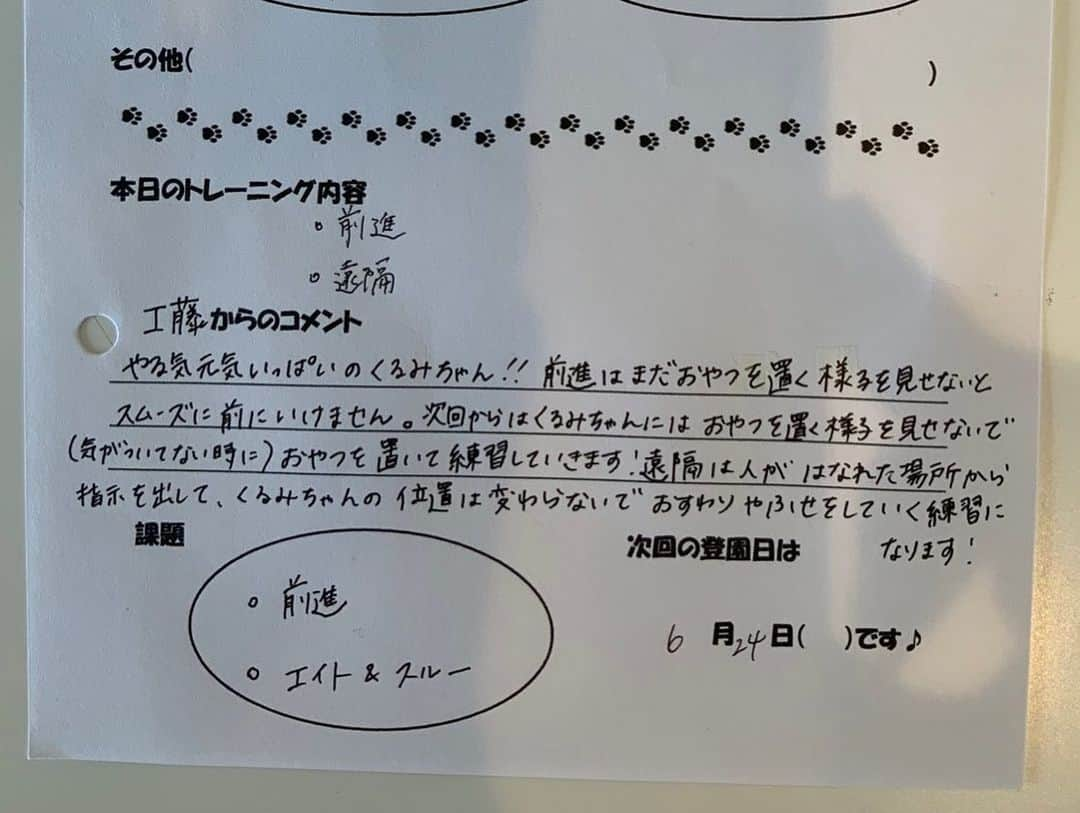 その他(　)
本日のトレーニング内容
○ 前進
○ 遠隔
工藤からのコメント
やる気元気いっぱいのくるみちゃん!! 前進はまだおやつを置く様子を見せないと
スムーズに前にいけません。次回からはくるみちゃんには おやつを置く様子を見せないで
(気がついてない時に)おやつを置いて練習していきます!遠隔は人がはなれた場所から
指示を出して、くるみちゃんの位置は変わらないでおすわりやふせをしていく練習に
なります!
課題
○ 前進
○ エイト & スルー
次回の登園日は
6月24日(　)です♪